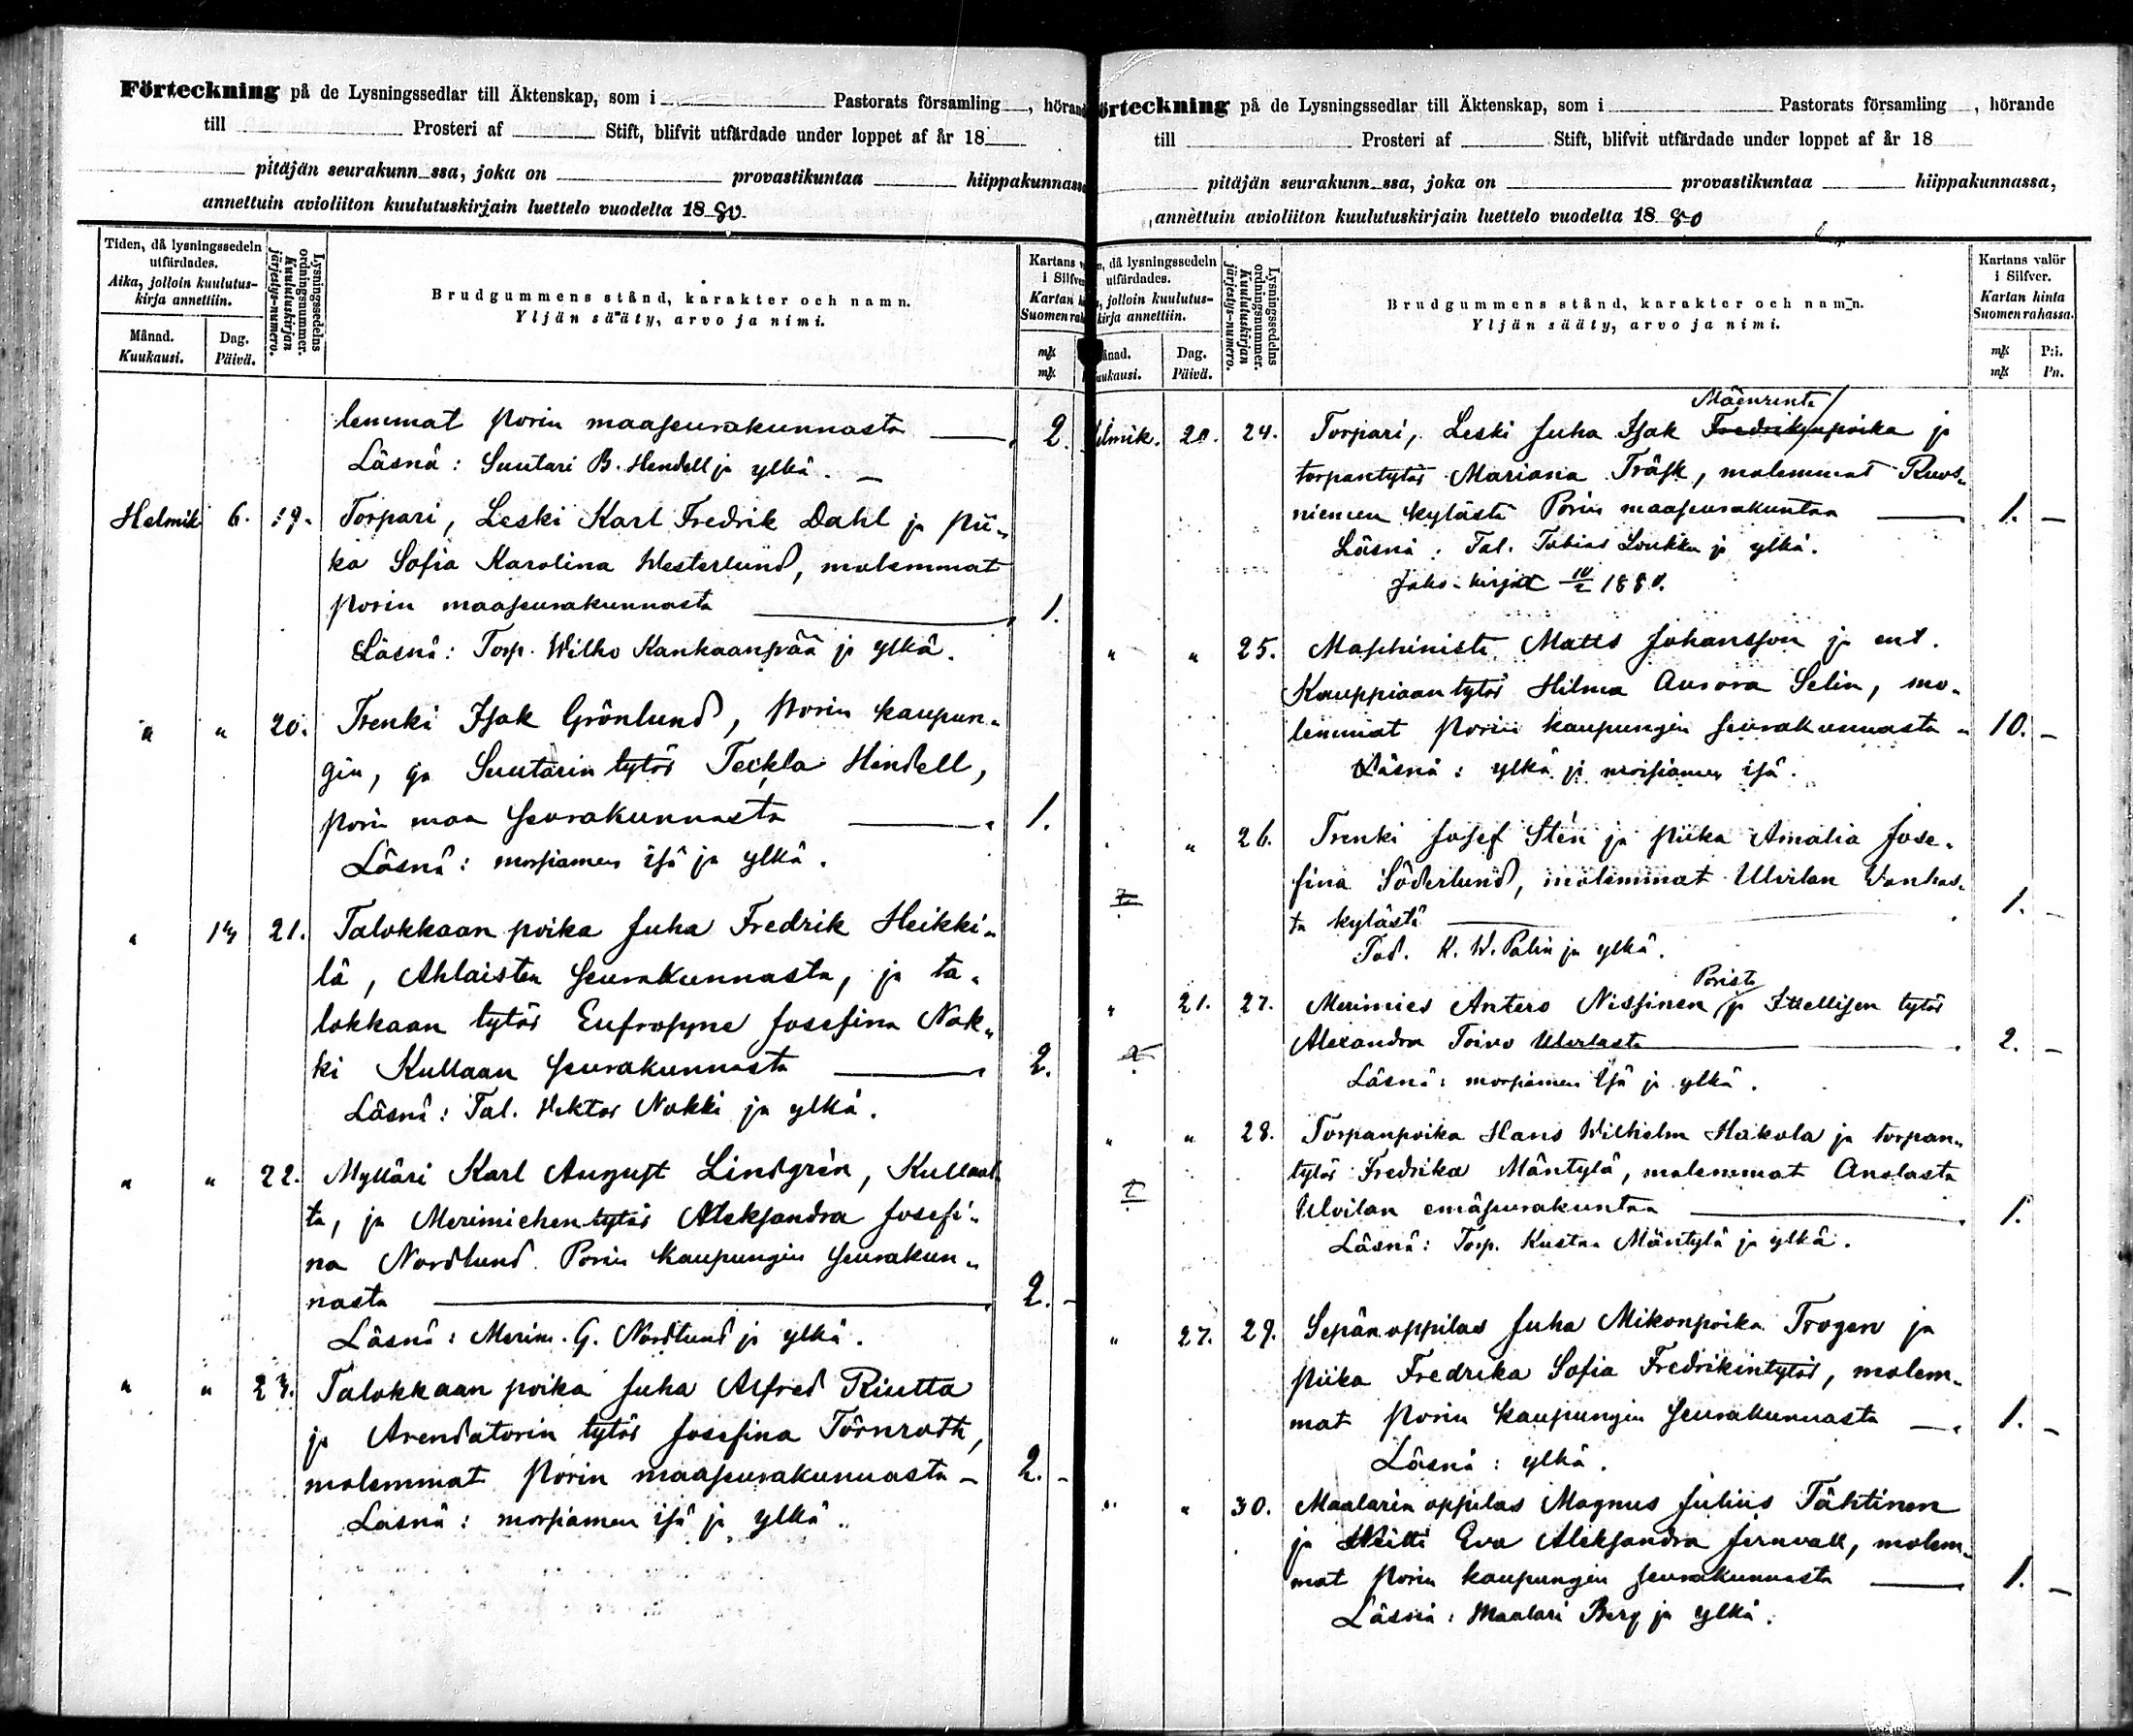 Förteckning på de Lysningssedlar till Äktenskap, som i Pastorats församling, hörande
till Prosteri af Stift, blifvit utfärdade under loppet af år 18
pitäjän seurakunn ssa, joka on provastikuntaa hiippakunnassa
annettuin avioliiton kuulutuskirjain luettelo vuodelta 1880
Tiden, då lysningssedeln utfärdades.
Aika, jolloin kuulutus-
kirja annettiin.
Månad. Kuukausi.
Dag. Päivä.
Lysningssedelns ordningsnummer.
Kuulutuskirjan järjestys-numero.
Brudgummens stånd, karakter och namn.
Yljän sääty, arvo ja nimi.
Kartans
i Silfver
Kartan
Suomen
mk
mk
lemmat Porin maaseurakunnasta 2.
Läsnä: Suutari B. Hendell ja ylkä.
Helmik 6. 19. Torpari, Leski Karl Fredrik Dahl ja pii-
ka Sofia Karolina Westerlund, molemmat
Porin maaseurakunnasta 1.
Läsnä: Torp. Wilho Kankaanpää ja ylkä.
" " 20. Trenki Isak Grönlund, Porin kaupun-
gin, ja Suutarin tytör Teckla Hendell,
Porin maa seurakunnasta 1.
Läsnä: morsiamen isä ja ylkä.
" 13 21. Talokkaan poika Juha Fredrik Heikki-
lä, Ahlaisten seurakunnasta, ja ta-
lokkaan tytär Eufrosyne Josefina Nok-
ki Kullaan seurakunnasta 2.
Läsnä: Tal. Hektor Nokki ja ylkä.
" " 22. Mylläri Karl August Lindgrén, Kullaal-
ta, ja Merimiehen tytär Aleksandra Josefi-
na Nordlund Porin kaupungin seurakun-
nasta 2. -
Läsnä: Merim. G. Nordlund ja ylkä.
" " 23. Talokkaan poika Juha Alfred Riutta
ja Arendatorin tytär Josefina Törnroth,
molemmat Porin maaseurakunnasta - 2. -
Läsnä: morsiamen isä ja ylkä.
Förteckning på de Lysningssedlar till Äktenskap, som i Pastorats församling, hörande
till Prosteri af Stift, blifvit utfärdade under loppet af år 18
pitäjän seurakunn ssa, joka on provastikuntaa hiippakunnassa,
annettuin avioliiton kuulutuskirjain luettelo vuodelta 1880
då lysningssedeln
utfärdades.
jolloin kuulutus-
kirja annettiin.
Dag. Päivä.
Lysningssedelns ordningsnummer.
Kuulutuskirjan järjestys-numero.
Brudgummens stånd, karakter och namn.
Yljän sääty, arvo ja nimi.
Kartans valör
i Silfver.
Kartan hinta
Suomen rahassa.
mk P:i.
mk Pn.
Mäenrinta
Helmik. 20. 24. Torpari, Leski Juha Isak Fredrikinpoika ja
torpantytär Mariana Träsk, molemmat Ruos-
niemen kylästä Porin maaseurakuntaa 1. -
Läsnä: Tal. Tobias Loukku ja ylkä.
Jako-kirjat 10/2 1880.
" " 25. Maschinisti Matts Johansson ja ent.
Kauppiaan tytär Hilma Aurora Selin, mo-
lemmat Porin kaupungin seurakunnasta 10. -
Läsnä: ylkä ja morsiamen isä.
" 26. Trenki Josef Stén ja piika Amalia Jose-
fina Söderlund, molemmat Ulvilan Vanhas-
ta kylästä 1. -
Tod. K. W. Palin ja ylkä.
Porista
" 21. 27. Merimies Antero Nissinen ja Itsellisen tytär
Alexandra Toivo Ulvilasta 2. -
Läsnä: morsiamen isä ja ylkä.
" " 28. Torpanpoika Hans Wilhelm Hakola ja torpan-
tytär Fredrika Mäntylä, molemmat Anolasta
Ulvilan emäseurakuntaa 1.
Läsnä: Torp. Kustaa Mäntylä ja ylkä.
" 27. 29. Sepänoppilas Juha Mikonpoika Trogen ja
piika Fredrika Sofia Fredrikintytär, molem-
mat Porin kaupungin seurakunnasta 1. -
Läsnä: ylkä.
" " 30. Maalarin oppilas Magnus Julius Tähtinen
ja Neitti Eva Aleksandra Jernvall, molem-
mat Porin kaupungin seurakunnasta 1. -
Läsnä: Maalari Berg ja ylkä.